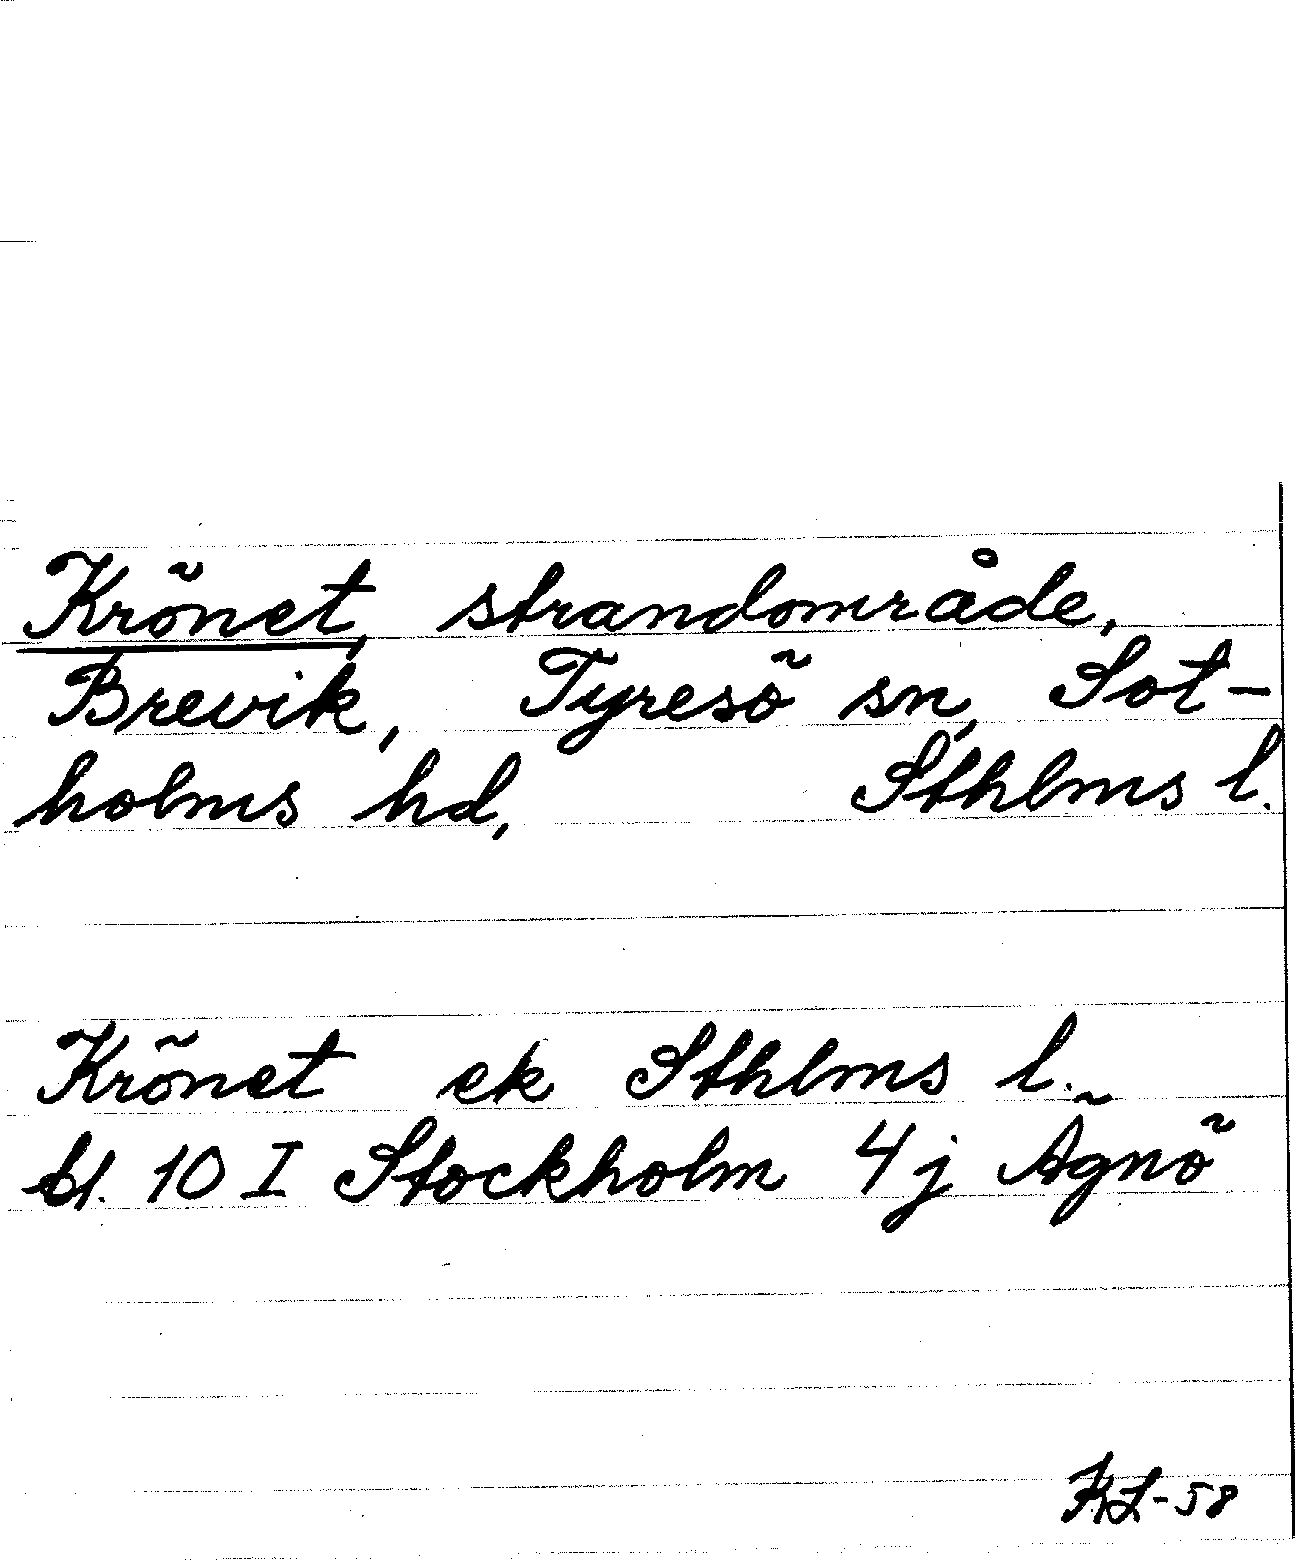 Krönet, strandområde,
Brevik, Tyresö sn, Sot-
holms hd, Sthlms l.
Krönet ek Sthlms l.
bl. 10 I Stockholm 4j Ägnö
KL-58